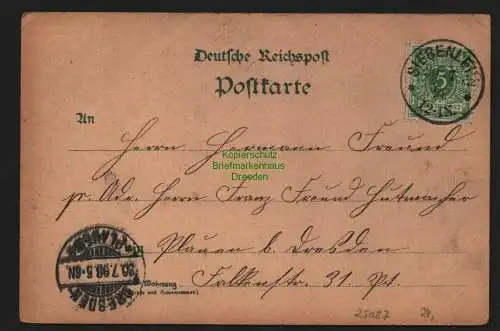 Deutsche Reichspost
Postkarte
SIEBENLEHN
5
12-1N.
An
Herrn Hermann Freund
Kopierschutz
Briefmarkenhaus
Dresden
pr. Adr. Herrn Franz Freund Hutmacher
Plauen b. Dresden
Falkenstr. 31. Pt.
Wohnung
DRESDEN
PLAUEN
5-6N.
25087